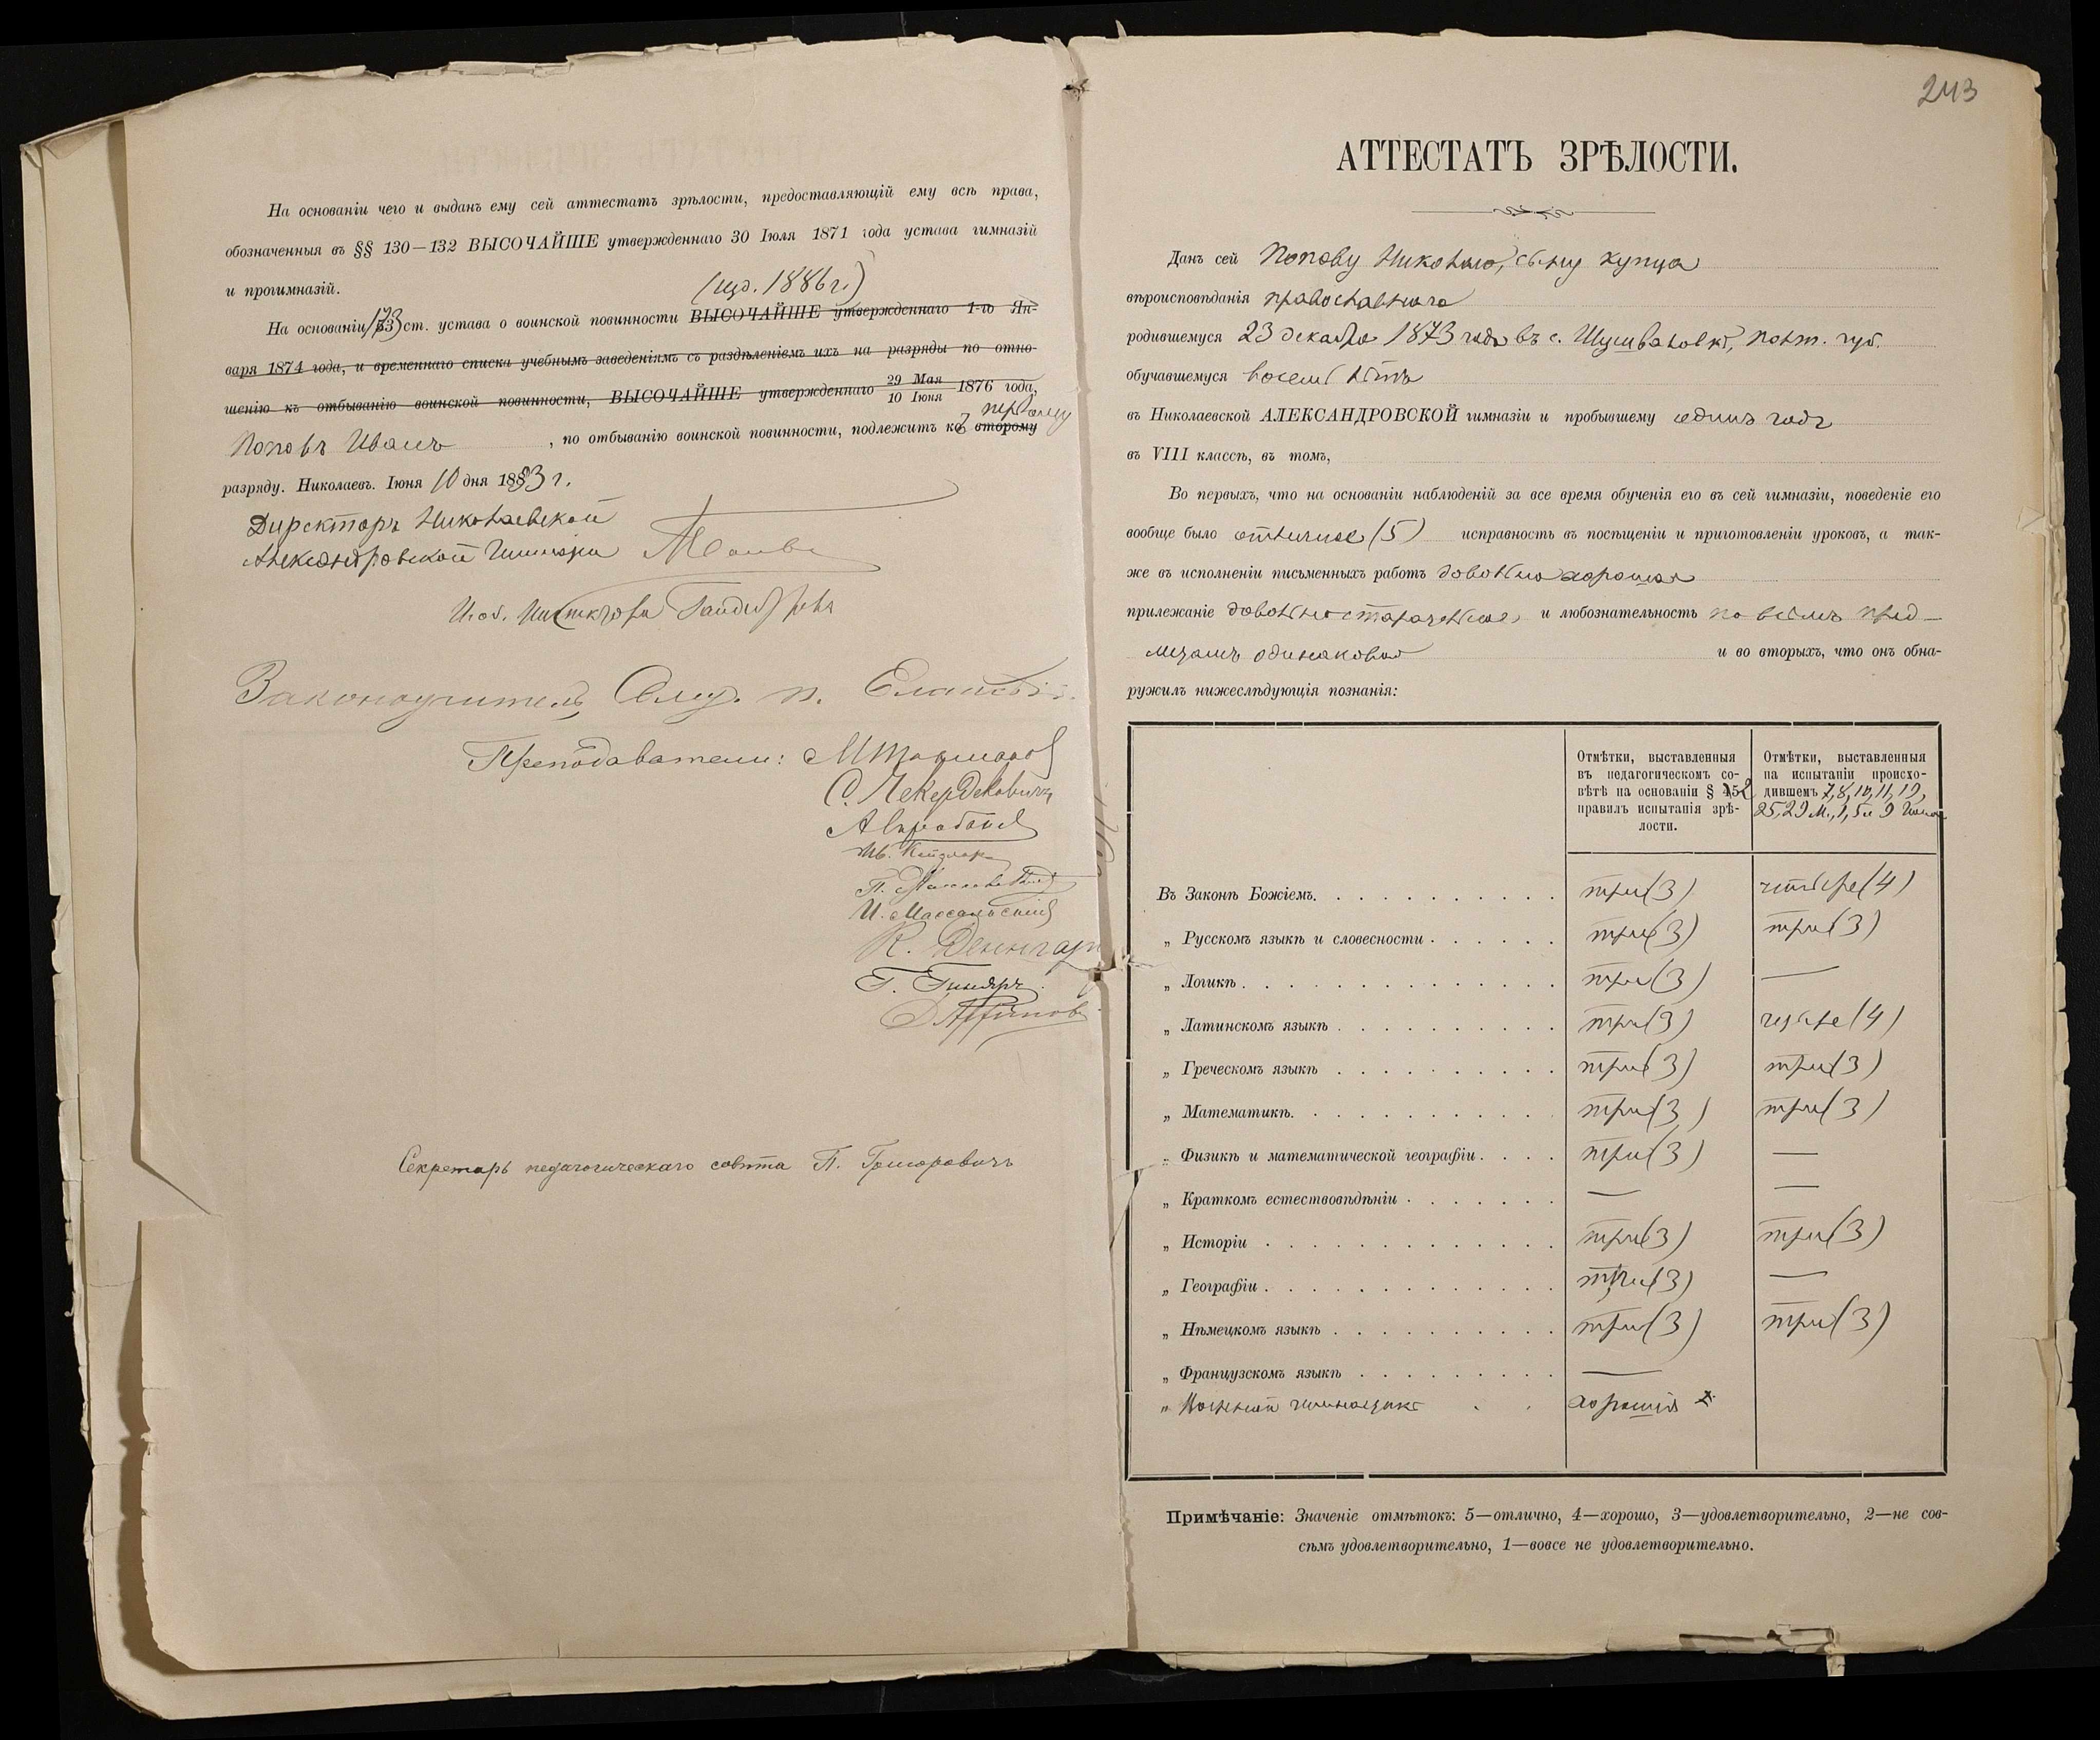 На основаніи чего и выданъ ему сей аттестатъ зрѣлости, предоставляющій ему всѣ права,
обозначенныя въ §§ 130—132 ВЫСОЧАЙШЕ утвержденнаго 30 Іюля 1871 года устава гимназій
и прогимназій.
(изд. 1886 г.)
На основаніи ст. устава о воинской повинности ВЫСОЧАЙШЕ утвержденнаго 1-го Ян-
варя 1874 года, и временнаго списка учебнымъ заведеніямъ съ раздѣленіемъ ихъ на разряды по отно-
шенію къ отбыванію воинской повинности, ВЫСОЧАЙШЕ утвержденнаго 29 Мая 10 Іюня 1876 года,
первому
Поповъ , по отбыванію воинской повинности, подлежитъ ко второму
разряду. Николаевъ. Іюня 10 дня 1893 г.
Директоръ Николаевской
Александровской Гимназіи
Законоучитель
Преподаватели:
Секретарь педагогическаго совѣта П. Григоровичъ
243
АТТЕСТАТЪ ЗРѢЛОСТИ.
Данъ сей Попову Николаю, сыну купца
вѣроисповѣданія православнаго
родившемуся 23 декабря 1873 года въ с. губ.
обучавшемуся восемь лѣтъ
въ Николаевской АЛЕКСАНДРОВСКОЙ гимназіи и пробывшему одинъ годъ
въ VIII классѣ, въ томъ,
Во первыхъ, что на основаніи наблюденій за все время обученія его въ сей гимназіи, поведеніе его
вообще было отличное (5) исправность въ посѣщеніи и приготовленіи уроковъ, а так-
же въ исполненіи письменныхъ работъ довольно хорошая
прилежаніе довольно старательное и любознательность по всѣмъ пред-
метамъ одинаковая и во вторыхъ, что онъ обна-
ружилъ нижеслѣдующія познанія:
Отмѣтки, выставленныя
въ педагогическомъ со-
вѣтѣ на основаніи §
правилъ испытанія зрѣ-
лости.
Отмѣтки, выставленныя
на испытаніи происхо-
дившемъ 7, 8, 10, 11, 19,
25, 29 М., 1, 5 и 9 Іюня
Въ Законѣ Божіемъ три (3) четыре (4)
„ Русскомъ языкѣ и словесности три (3) три (3)
„ Логикѣ три (3) —
„ Латинскомъ языкѣ три (3) четыре (4)
„ Греческомъ языкѣ три (3) три (3)
„ Математикѣ три (3) три (3)
„ Физикѣ и математической географіи три (3) —
„ Краткомъ естествовѣдѣніи — —
„ Исторіи три (3) три (3)
„ Географіи три (3) —
„ Нѣмецкомъ языкѣ три (3) три (3)
„ Французскомъ языкѣ —
„ Военной гимнастикѣ хорошія
Примѣчаніе: Значеніе отмѣтокъ: 5—отлично, 4—хорошо, 3—удовлетворительно, 2—не сов-
сѣмъ удовлетворительно, 1—вовсе не удовлетворительно.